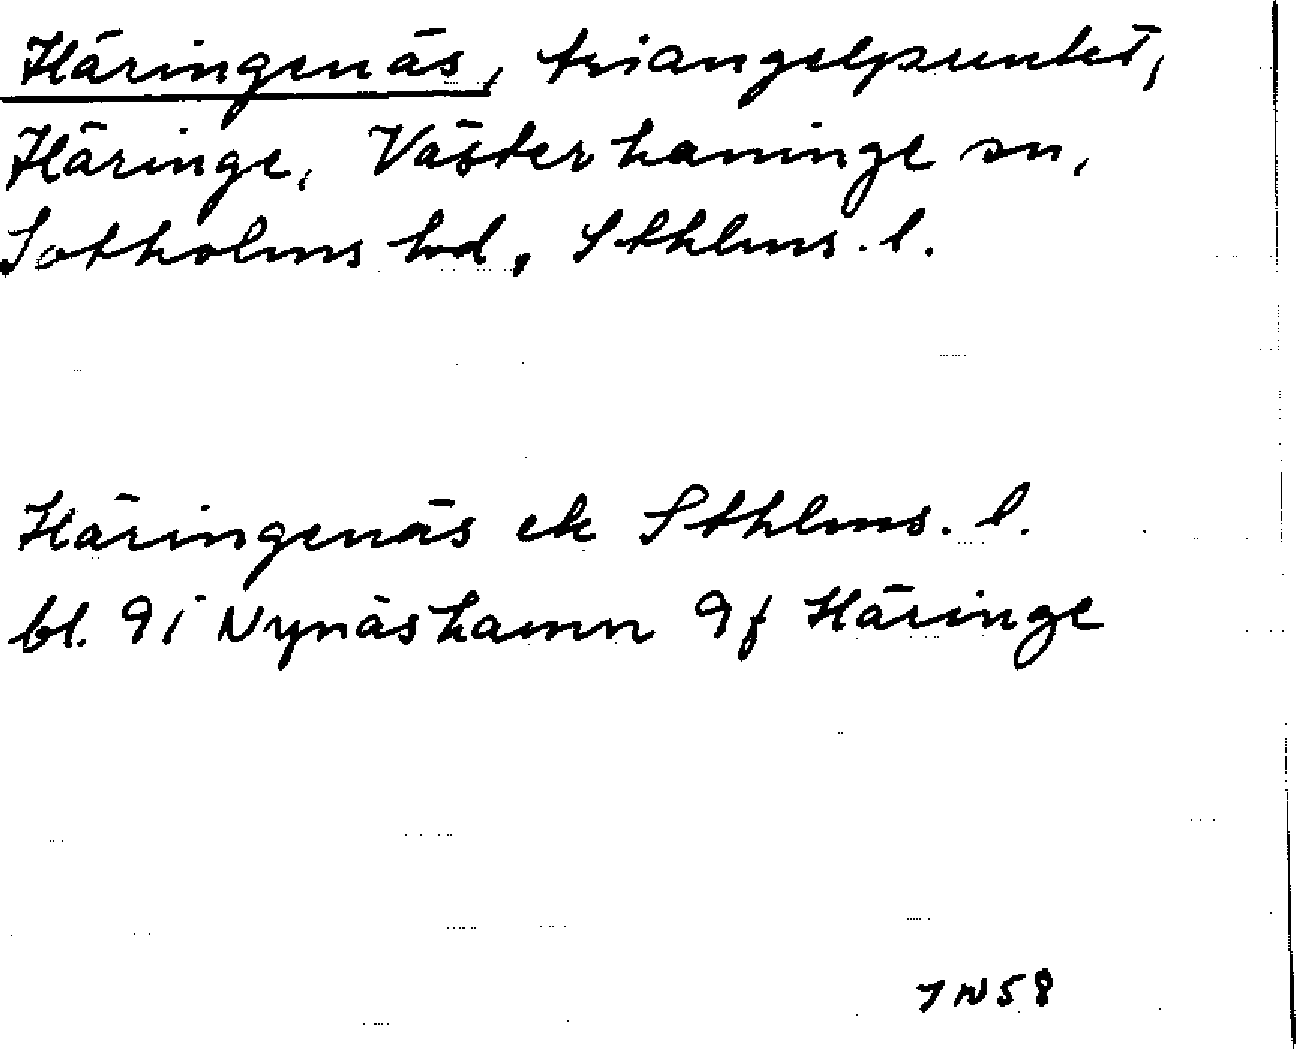 Häringenäs, triangelpunkt,
Häringe, Västerhaninge sn,
Sotholms hd, Sthlms. l.
Häringenäs ek Sthlms. l.
bl. 9i Nynäshamn 9f Häringe
JN58